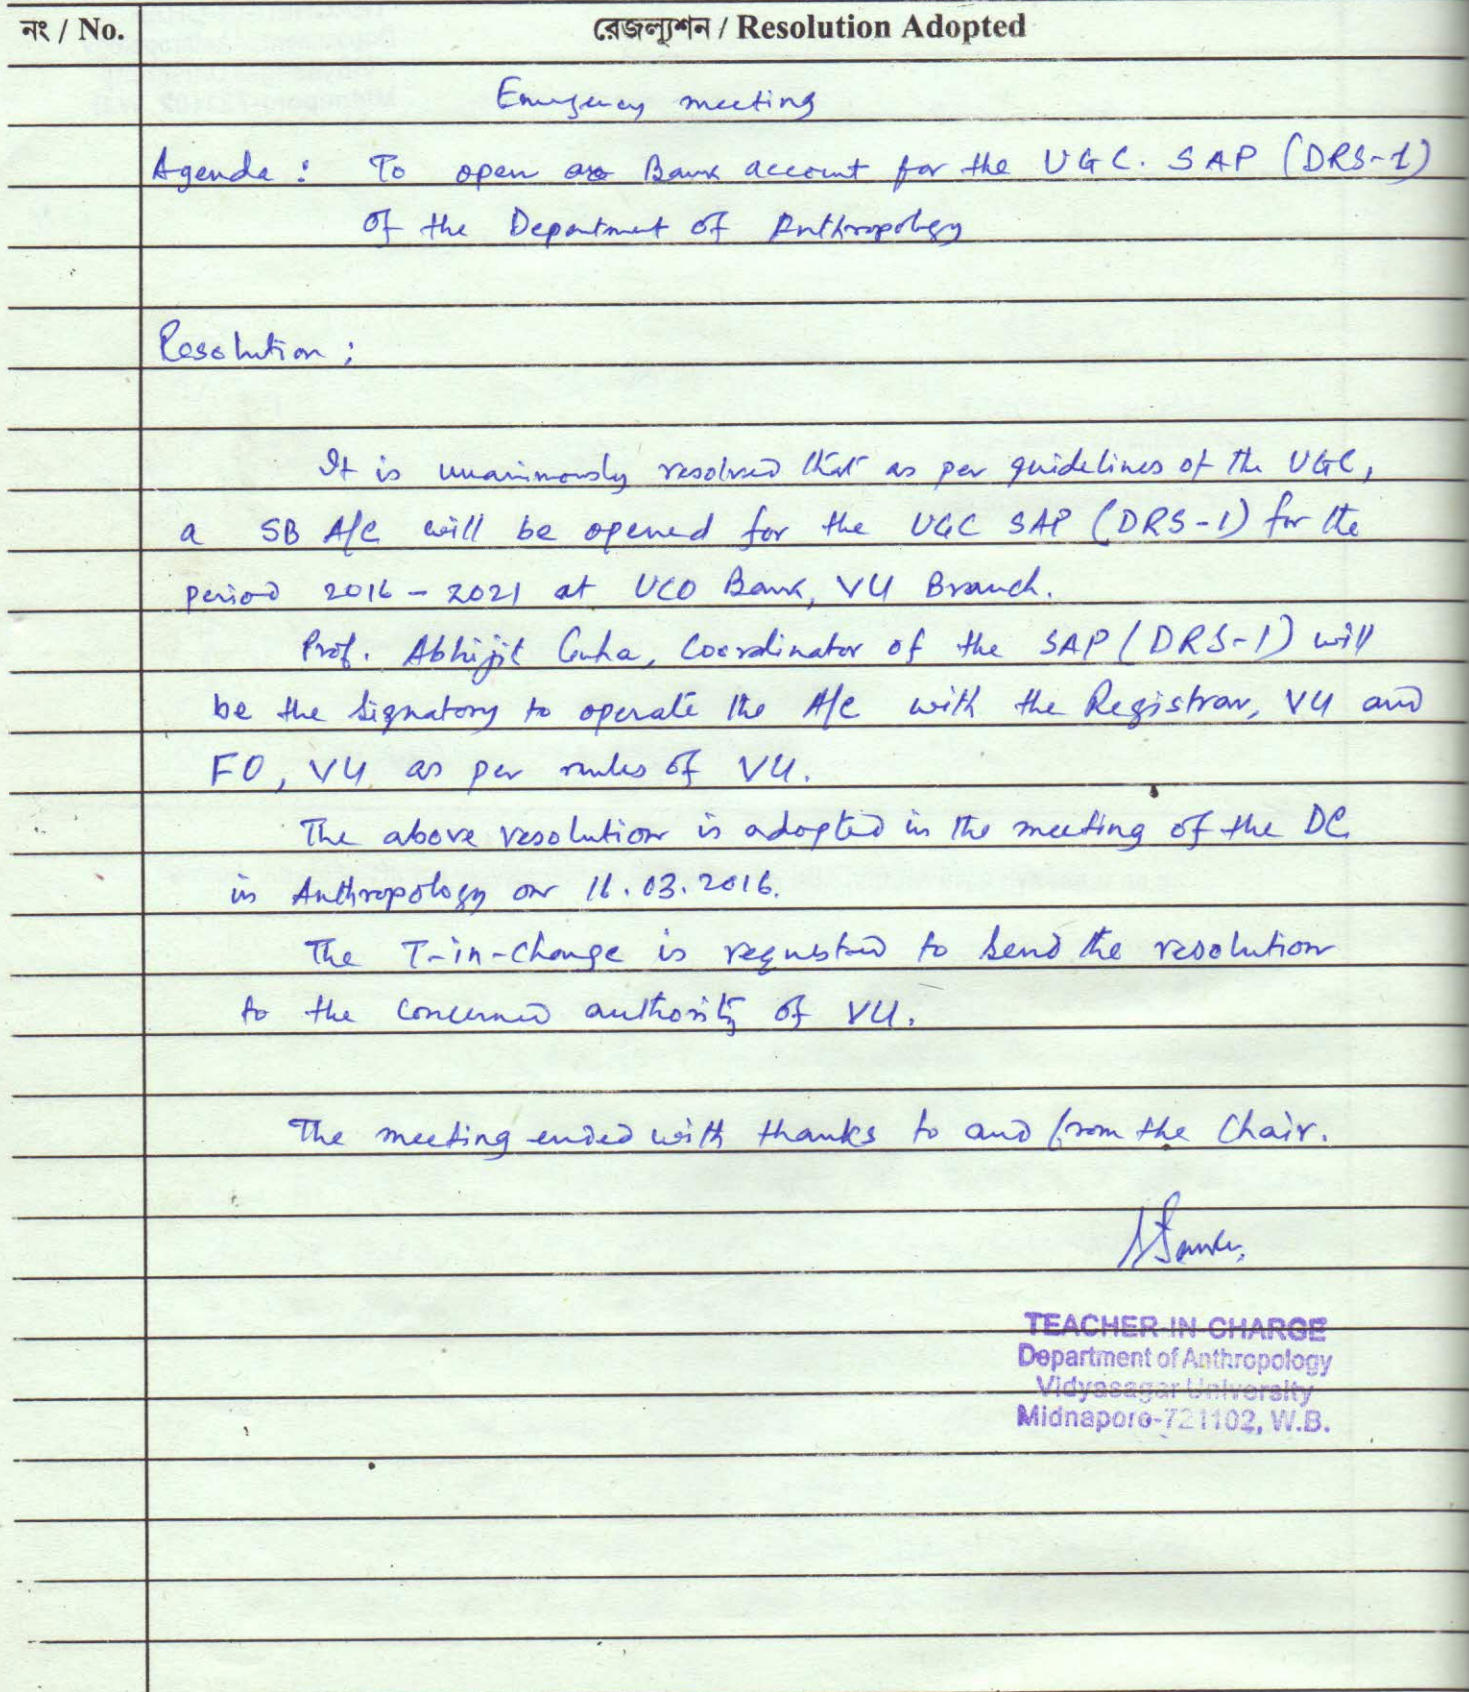 নং / No.
রেজল্যুশন / Resolution Adopted
Emergency meeting
Agenda : To open Bank account for the UGC. SAP (DRS-1)
of the Department of Anthropology
Resolution :
It is unanimously resolved that as per guidelines of the UGC,
a SB A/C will be opened for the UGC SAP (DRS-1) for the
period 2016 - 2021 at UCO Bank, VU Branch.
Prof. Abhijit Guha, Coordinator of the SAP (DRS-1) will
be the signatory to operate the A/C with the Registrar, VU and
FO, VU as per rules of VU.
The above resolution is adopted in the meeting of the DC
in Anthropology on .03.2016.
The T-in-Charge is requested to send the resolution
to the concerned authority of VU.
The meeting ended with thanks to and from the Chair.
TEACHER-IN-CHARGE
Department of Anthropology
Vidyasagar University
Midnapore-721102, W.B.